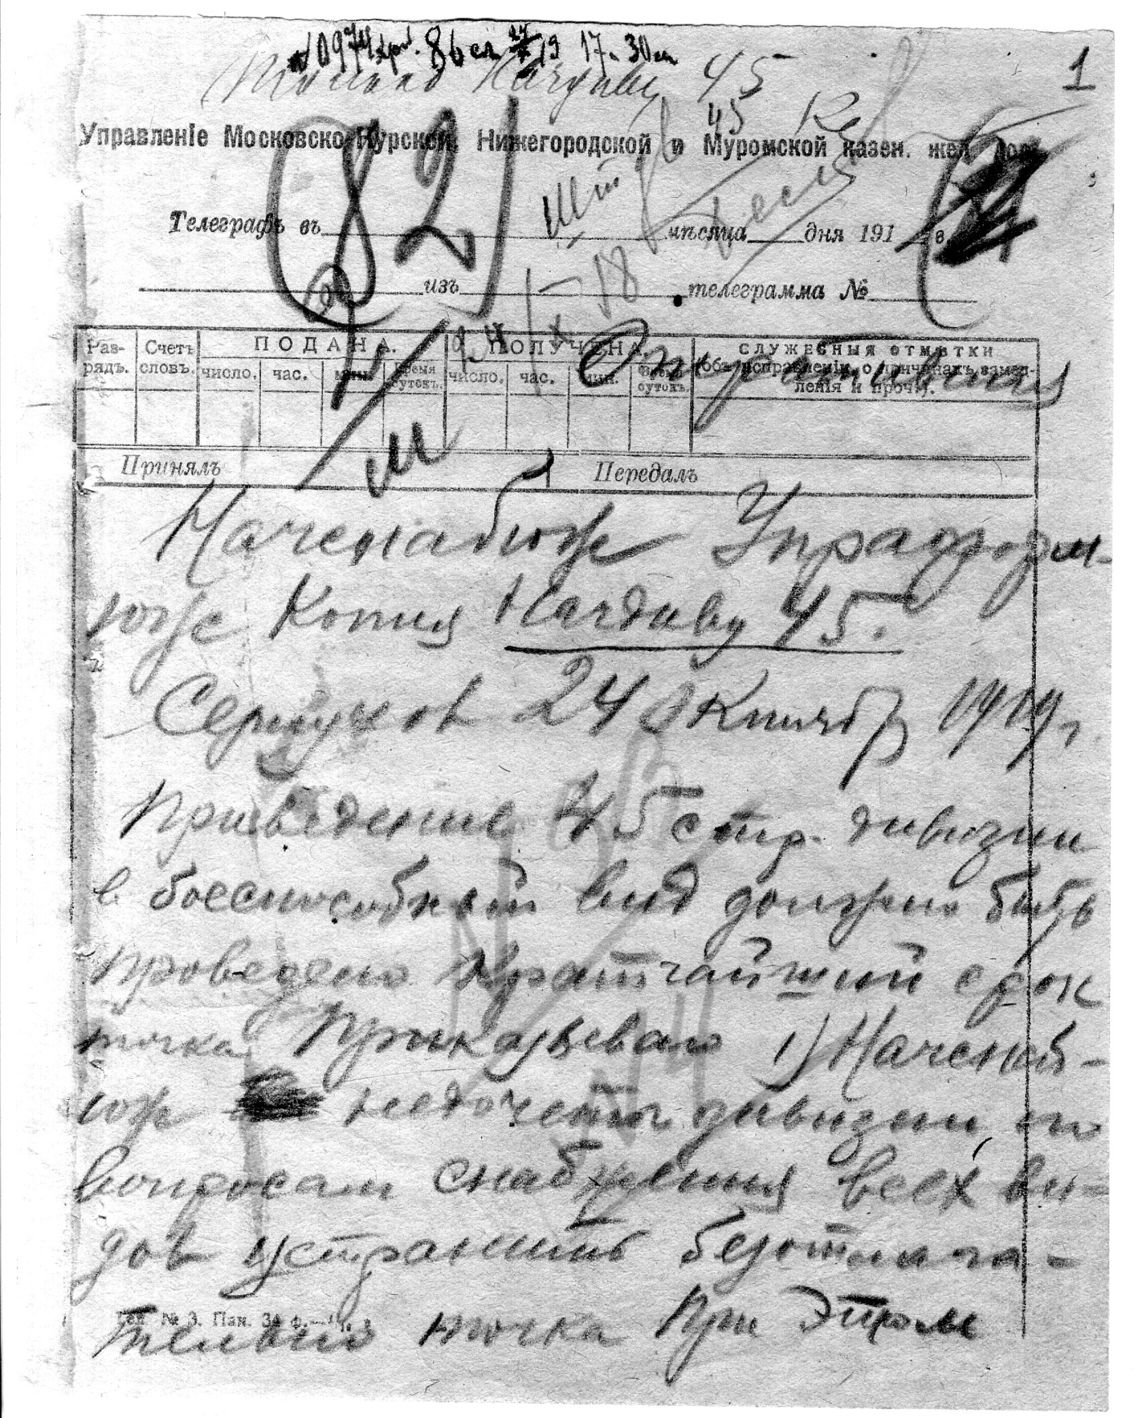 0974 86 сл 24/X 19 17ч 30м
Начдиву 45
1
45
Управленіе Московско-Курской, Нижегородской и Муромской казен. жел. дор.
(82)
Телеграфъ въ мѣсяца дня 191 г. в
изъ телеграмма №
24/X 18
Оперативная
Раз-рядъ. Счетъ словъ. ПОДАНА. ПОЛУЧЕНА. СЛУЖЕБНЫЯ ОТМѢТКИ
число. час. мин. Время сутокъ. число. час. мин. Время сутокъ. (объ исправленіи, о причинахъ замед-
ленія и проч.).
Принялъ Передалъ
Начснабюж Упраформ-
юж Копия Начдиву 45.
Серпухов 24 Октября 1919 г.
Приведение 45 стр. дивизии
в боеспособный вид должно быть
проведено кратчайший срок
точка Приказываю 1) Начснаб-
юж недочеты дивизии по
вопросам снабжения всех ви-
дов устранить безотлага-
№ 3. Пан. 34 ф.
тельно точка При этом